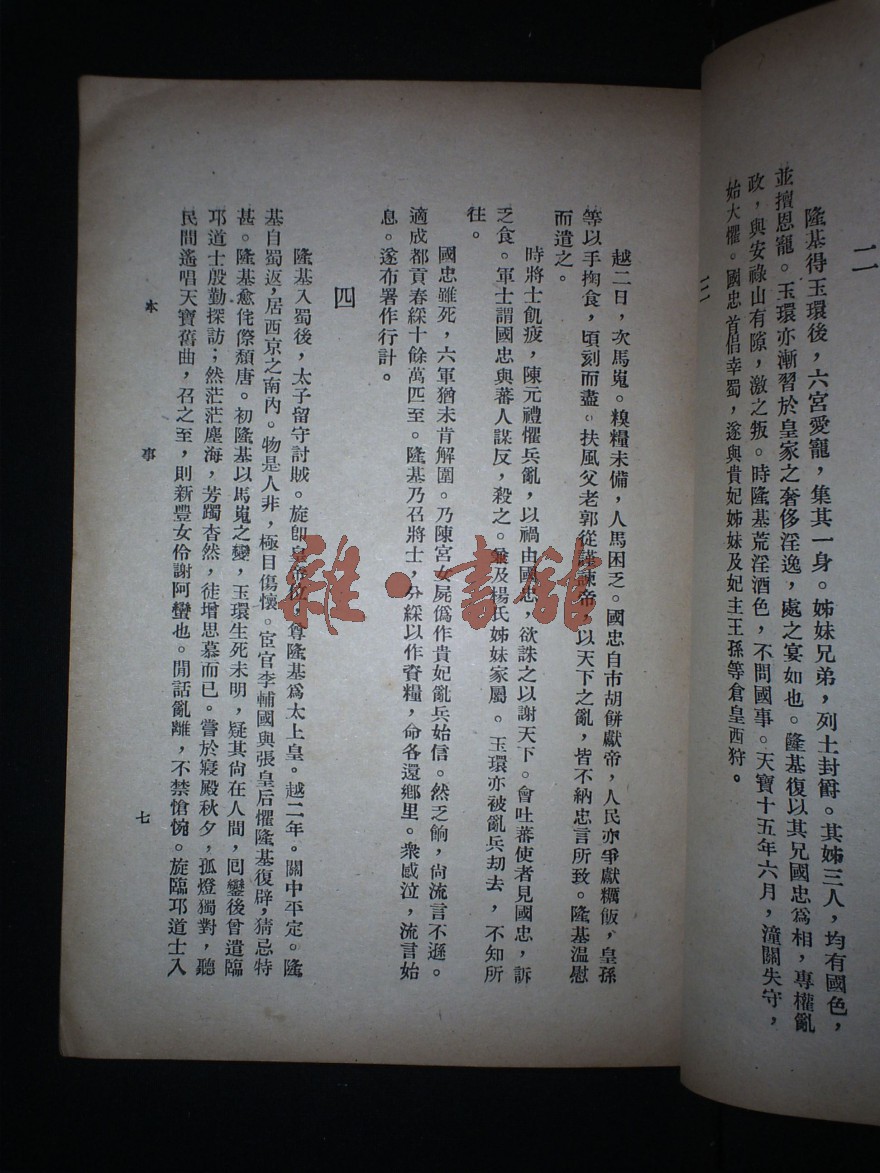 二
隆基得玉環後，六宮愛寵，集其一身。姊妹兄弟，列土封爵。其姊三人，均有國色，
並擅恩寵。玉環亦漸習於皇家之奢侈淫逸，處之宴如也。隆基復以其兄國忠爲相，專權亂
政，與安祿山有隙，激之叛。時隆基荒淫酒色，不問國事。天寶十五年六月，潼關失守，
始大懼。國忠首倡幸蜀，遂與貴妃姊妹及妃主王孫等倉皇西狩。
三
越二日，次馬嵬。糗糧未備，人馬困乏。國忠自市胡餅獻帝，人民亦爭獻糲飯，皇孫
等以手掬食，頃刻而盡。扶風父老郭從謹諫帝，以天下之亂，皆不納忠言所致。隆基溫慰
而遣之。
時將士飢疲，陳元禮懼兵亂，以禍由國忠，欲誅之以謝天下。會吐蕃使者見國忠，訴
乏食。軍士謂國忠與蕃人謀反，殺之。並及楊氏姊妹家屬。玉環亦被亂兵刧去，不知所
往。
國忠雖死，六軍猶未肯解圍。乃陳宮女屍僞作貴妃亂兵始信。然乏餉，尙流言不遜。
適成都貢春綵十餘萬匹至。隆基乃召將士，分綵以作資糧，命各還鄉里。衆感泣，流言始
息。遂布署作行計。
四
隆基入蜀後，太子留守討賊。旋卽皇帝位，尊隆基爲太上皇。越二年。關中平定。隆
基自蜀返，居西京之南內。物是人非，極目傷懷。宦官李輔國與張皇后懼隆基復辟，猜忌特
甚。隆基愈侘傺頹唐。初隆基以馬嵬之變，玉環生死未明，疑其尙在人間，囘鑾後曾遣臨
邛道士殷勤探訪；然茫茫塵海，芳躅杳然，徒增思慕而已。嘗於寢殿秋夕，孤燈獨對，聽
民間遙唱天寶舊曲，召之至，則新豐女伶謝阿蠻也。閒話亂離，不禁愴惋。旋臨邛道士入
本事
七
雜·書館